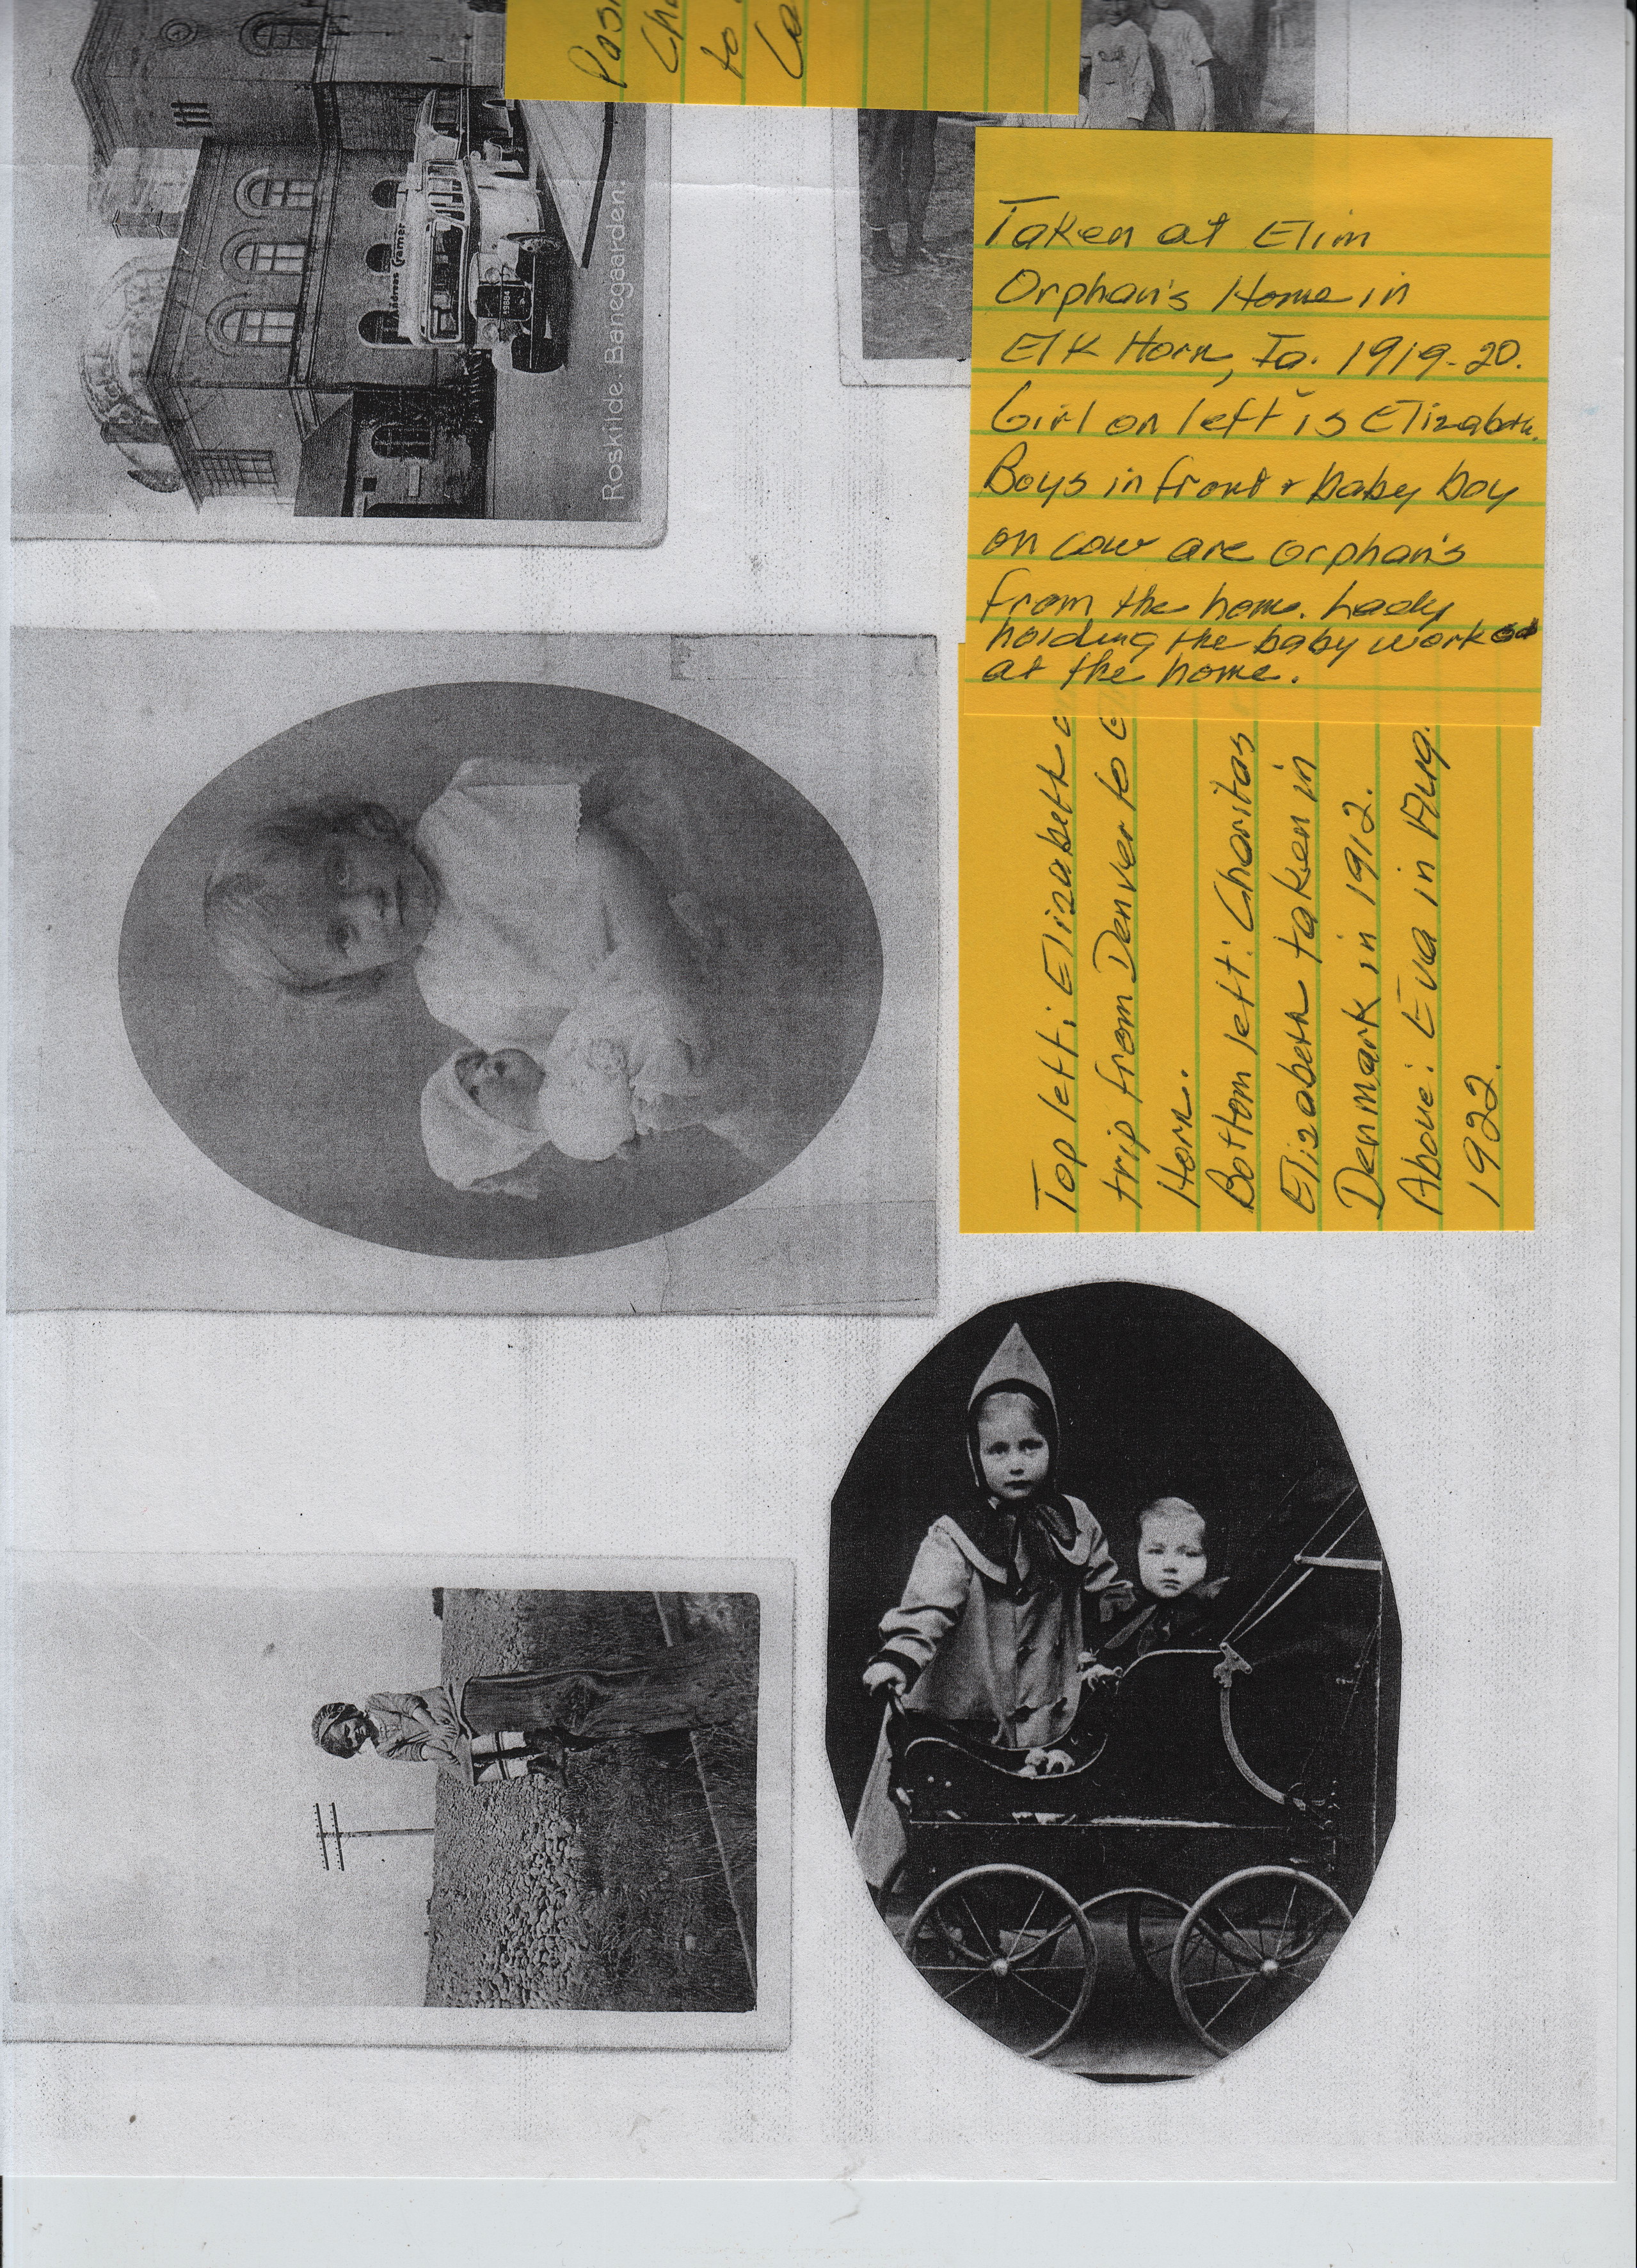 to
Taken at Elim
Orphan's Home in
Elk Horn, Ia. 1919-20.
Girl on left is Elizabeth.
Boys in front & baby boy
on cow are orphan's
from the home. Lady
holding the baby worked
at the home.
Top left: Elizabeth
trip from Denver to
Horn.
Bottom left: Charitas
Elizabeth taken in
Denmark in 1912.
Above: Eva in Aug.
1922.
Andreas Cramer
Roskilde. Banegaarden.